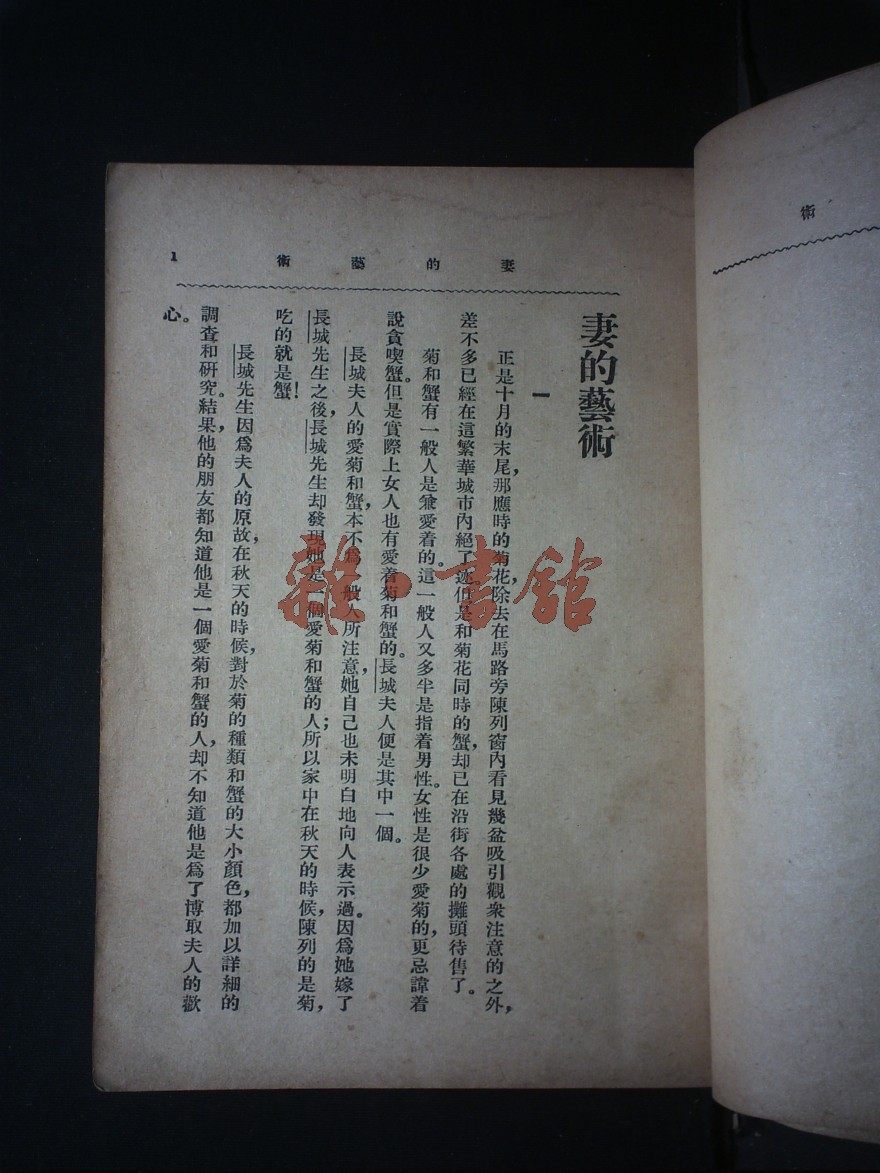 術
妻的藝術
1
妻的藝術
一
正是十月的末尾，那應時的菊花，除去在馬路旁陳列窗內看見幾盆吸引觀衆注意的之外，
差不多已經在這繁華城市內絕了迹。但是和菊花同時的蟹，却已在沿街各處的攤頭待售了。
菊和蟹有一般人是兼愛着的。這一般人又多半是指着男性。女性是很少愛菊的，更忌諱着
說貪喫蟹。但是實際上女人也有愛着菊和蟹的。長城夫人便是其中一個。
長城夫人的愛菊和蟹，本不爲一般人所注意，她自己也未明白地向人表示過。因爲她嫁了
長城先生之後，長城先生却發現她是一個愛菊和蟹的人；所以家中在秋天的時候，陳列的是菊，
吃的就是蟹！
長城先生因爲夫人的原故，在秋天的時候，對於菊的種類和蟹的大小顏色，都加以詳細的
調查和研究。結果，他的朋友都知道他是一個愛菊和蟹的人，却不知道他是爲了博取夫人的歡
心。
雜·書館